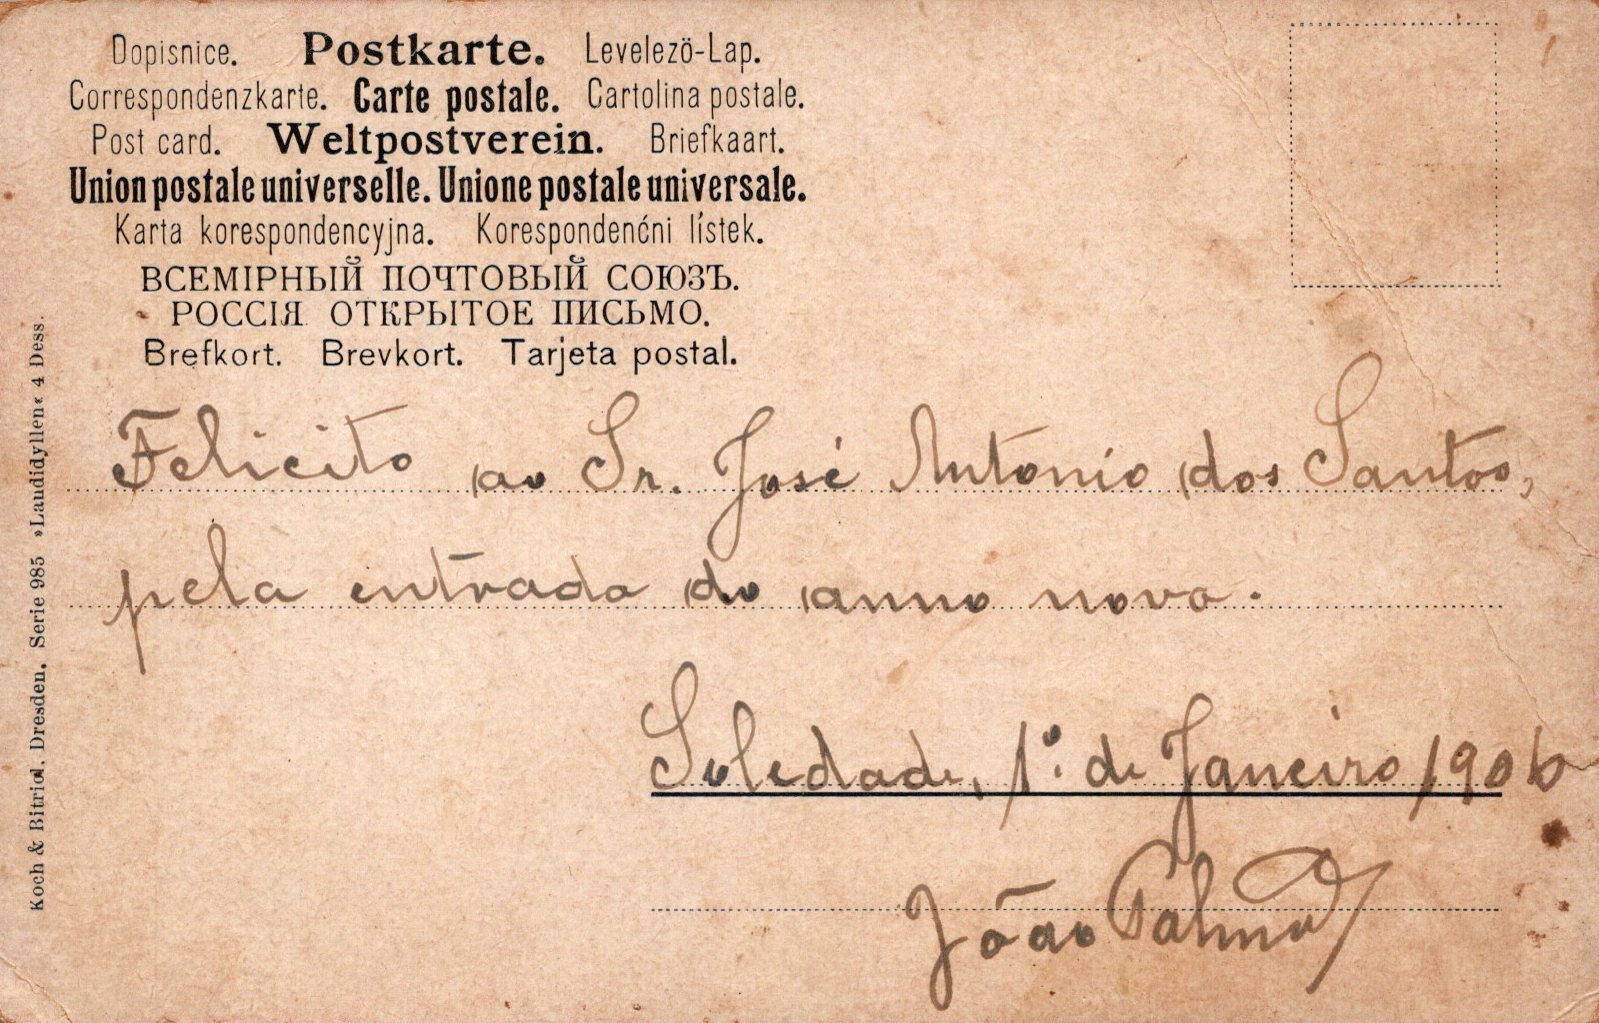 Dopisnice. Postkarte. Levelezö-Lap.
Correspondenzkarte. Carte postale. Cartolina postale.
Post card. Weltpostverein. Briefkaart.
Union postale universelle. Unione postale universale.
Karta korespondencyjna. Korespondenćni lístek.
ВСЕМІРНЫЙ ПОЧТОВЫЙ СОЮЗЪ.
РОССІЯ ОТКРЫТОЕ ПИСЬМО.
Brefkort. Brevkort. Tarjeta postal.
Felicito ao Sr. José Antonio dos Santos,
pela entrada do anno novo.
Soledade, 1º. de Janeiro 1906
João Palma
Koch & Bitriol, Dresden. Serie 985 »Laudidyllen« 4 Dess.